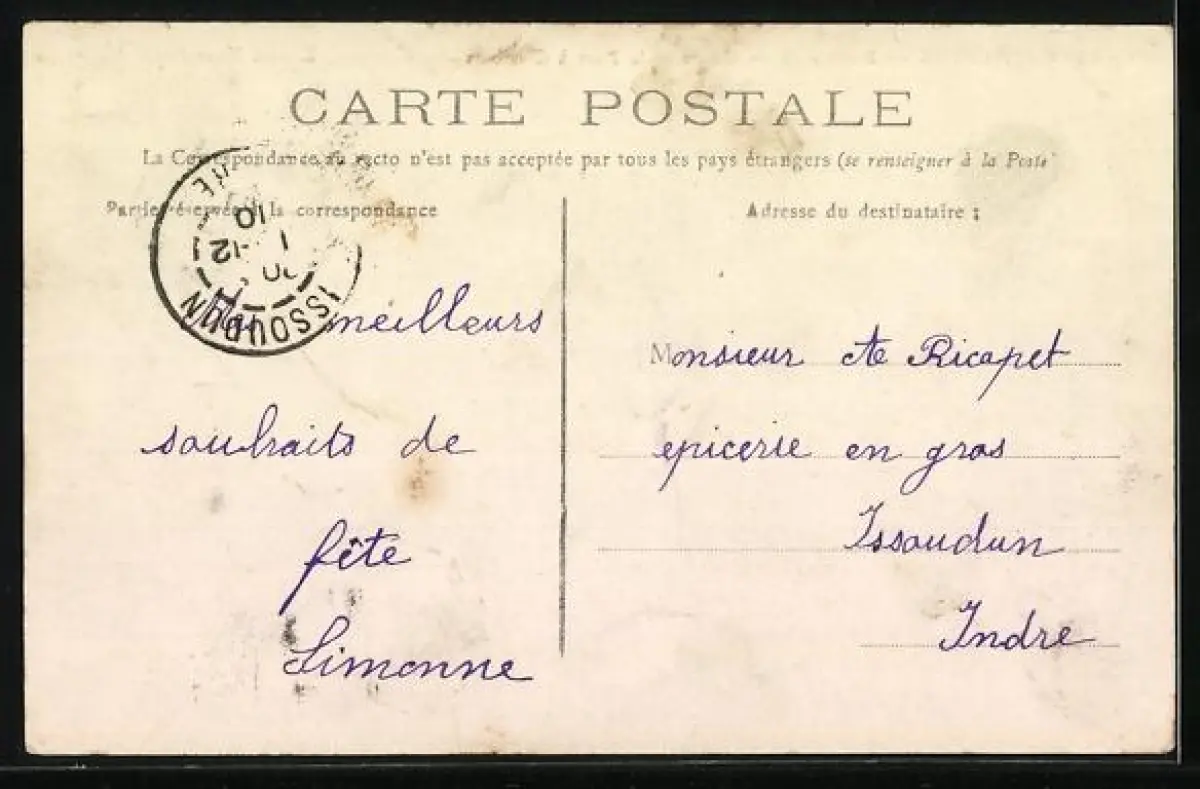 CARTE POSTALE
La Correspondance au recto n'est pas acceptée par tous les pays étrangers (se renseigner à la Poste)
Partie réservée à la correspondance
Adresse du destinataire :
ISSOUDUN
INDRE
10
1 -12
meilleurs
souhaits de
fête
Simonne
Monsieur Ate Ricapet
epicerie en gros
Issoudun
Indre